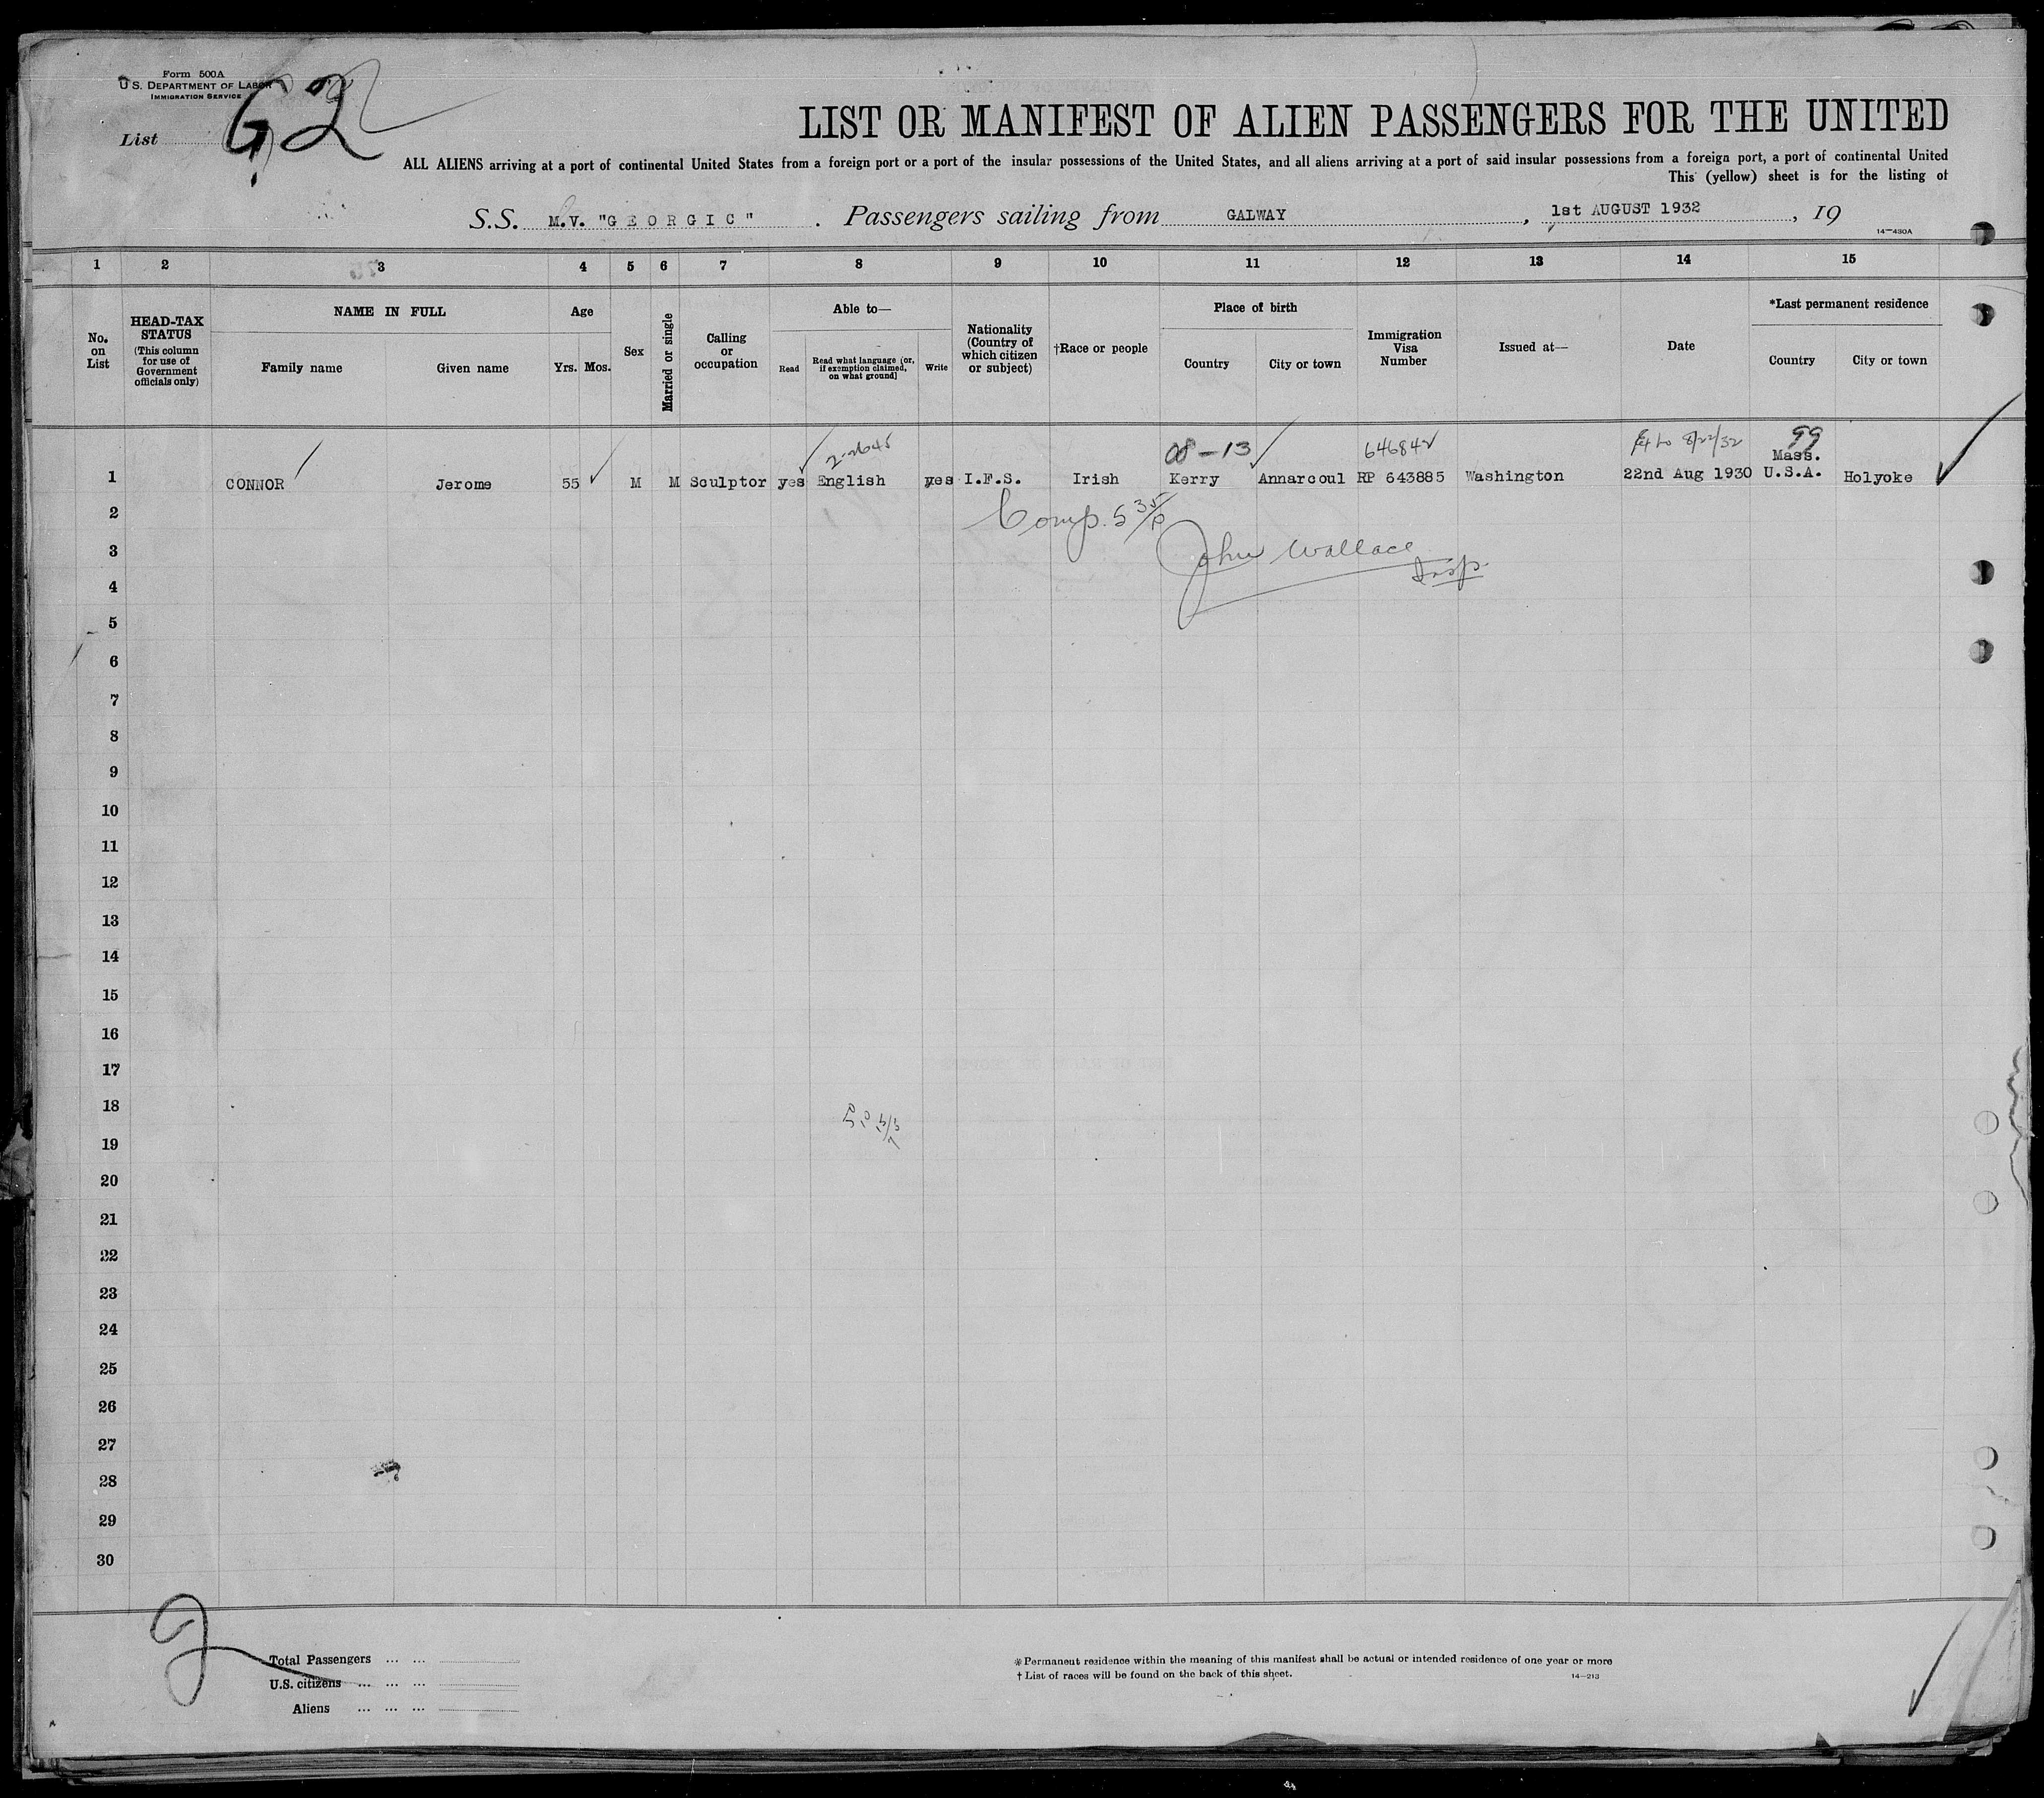 Form 500A
U S. DEPARTMENT OF LABOR
IMMIGRATION SERVICE
List
LIST OR MANIFEST OF ALIEN PASSENGERS FOR THE UNITED
ALL ALIENS arriving at a port of continental United States from a foreign port or a port of the insular possessions of the United States, and all aliens arriving at a port of said insular possessions from a foreign port, a port of continental United
This (yellow) sheet is for the listing of
S.S. M.V. "GEORGIC" . Passengers sailing from GALWAY , 1st AUGUST 1932 , 19
14—430A
1 2 3 4 5 6 7 8 9 10 11 12 13 14 15
No. on List
HEAD-TAX STATUS
(This column for use of Government officials only)
NAME IN FULL
Family name Given name
Age
Yrs. Mos.
Sex
Married or single
Calling or occupation
Able to—
Read
Read what language (or, if exemption claimed, on what ground)
Write
Nationality (Country of which citizen or subject)
†Race or people
Place of birth
Country City or town
Immigration Visa Number
Issued at—
Date
*Last permanent residence
Country City or town
08-13 646842 8/22/32 99
Mass.
1 CONNOR Jerome 55 M M Sculptor yes English yes I.F.S. Irish Kerry Annarcoul RP 643885 Washington 22nd Aug 1930 U.S.A. Holyoke
2
Comp.
3
John Wallace
Insp.
4
5
6
7
8
9
10
11
12
13
14
15
16
17
18
19
20
21
22
23
24
25
26
27
28
29
30
Total Passengers ... ...
U.S. citizens ... ... ...
Aliens ... ... ...
*Permanent residence within the meaning of this manifest shall be actual or intended residence of one year or more
†List of races will be found on the back of this sheet.
14—213